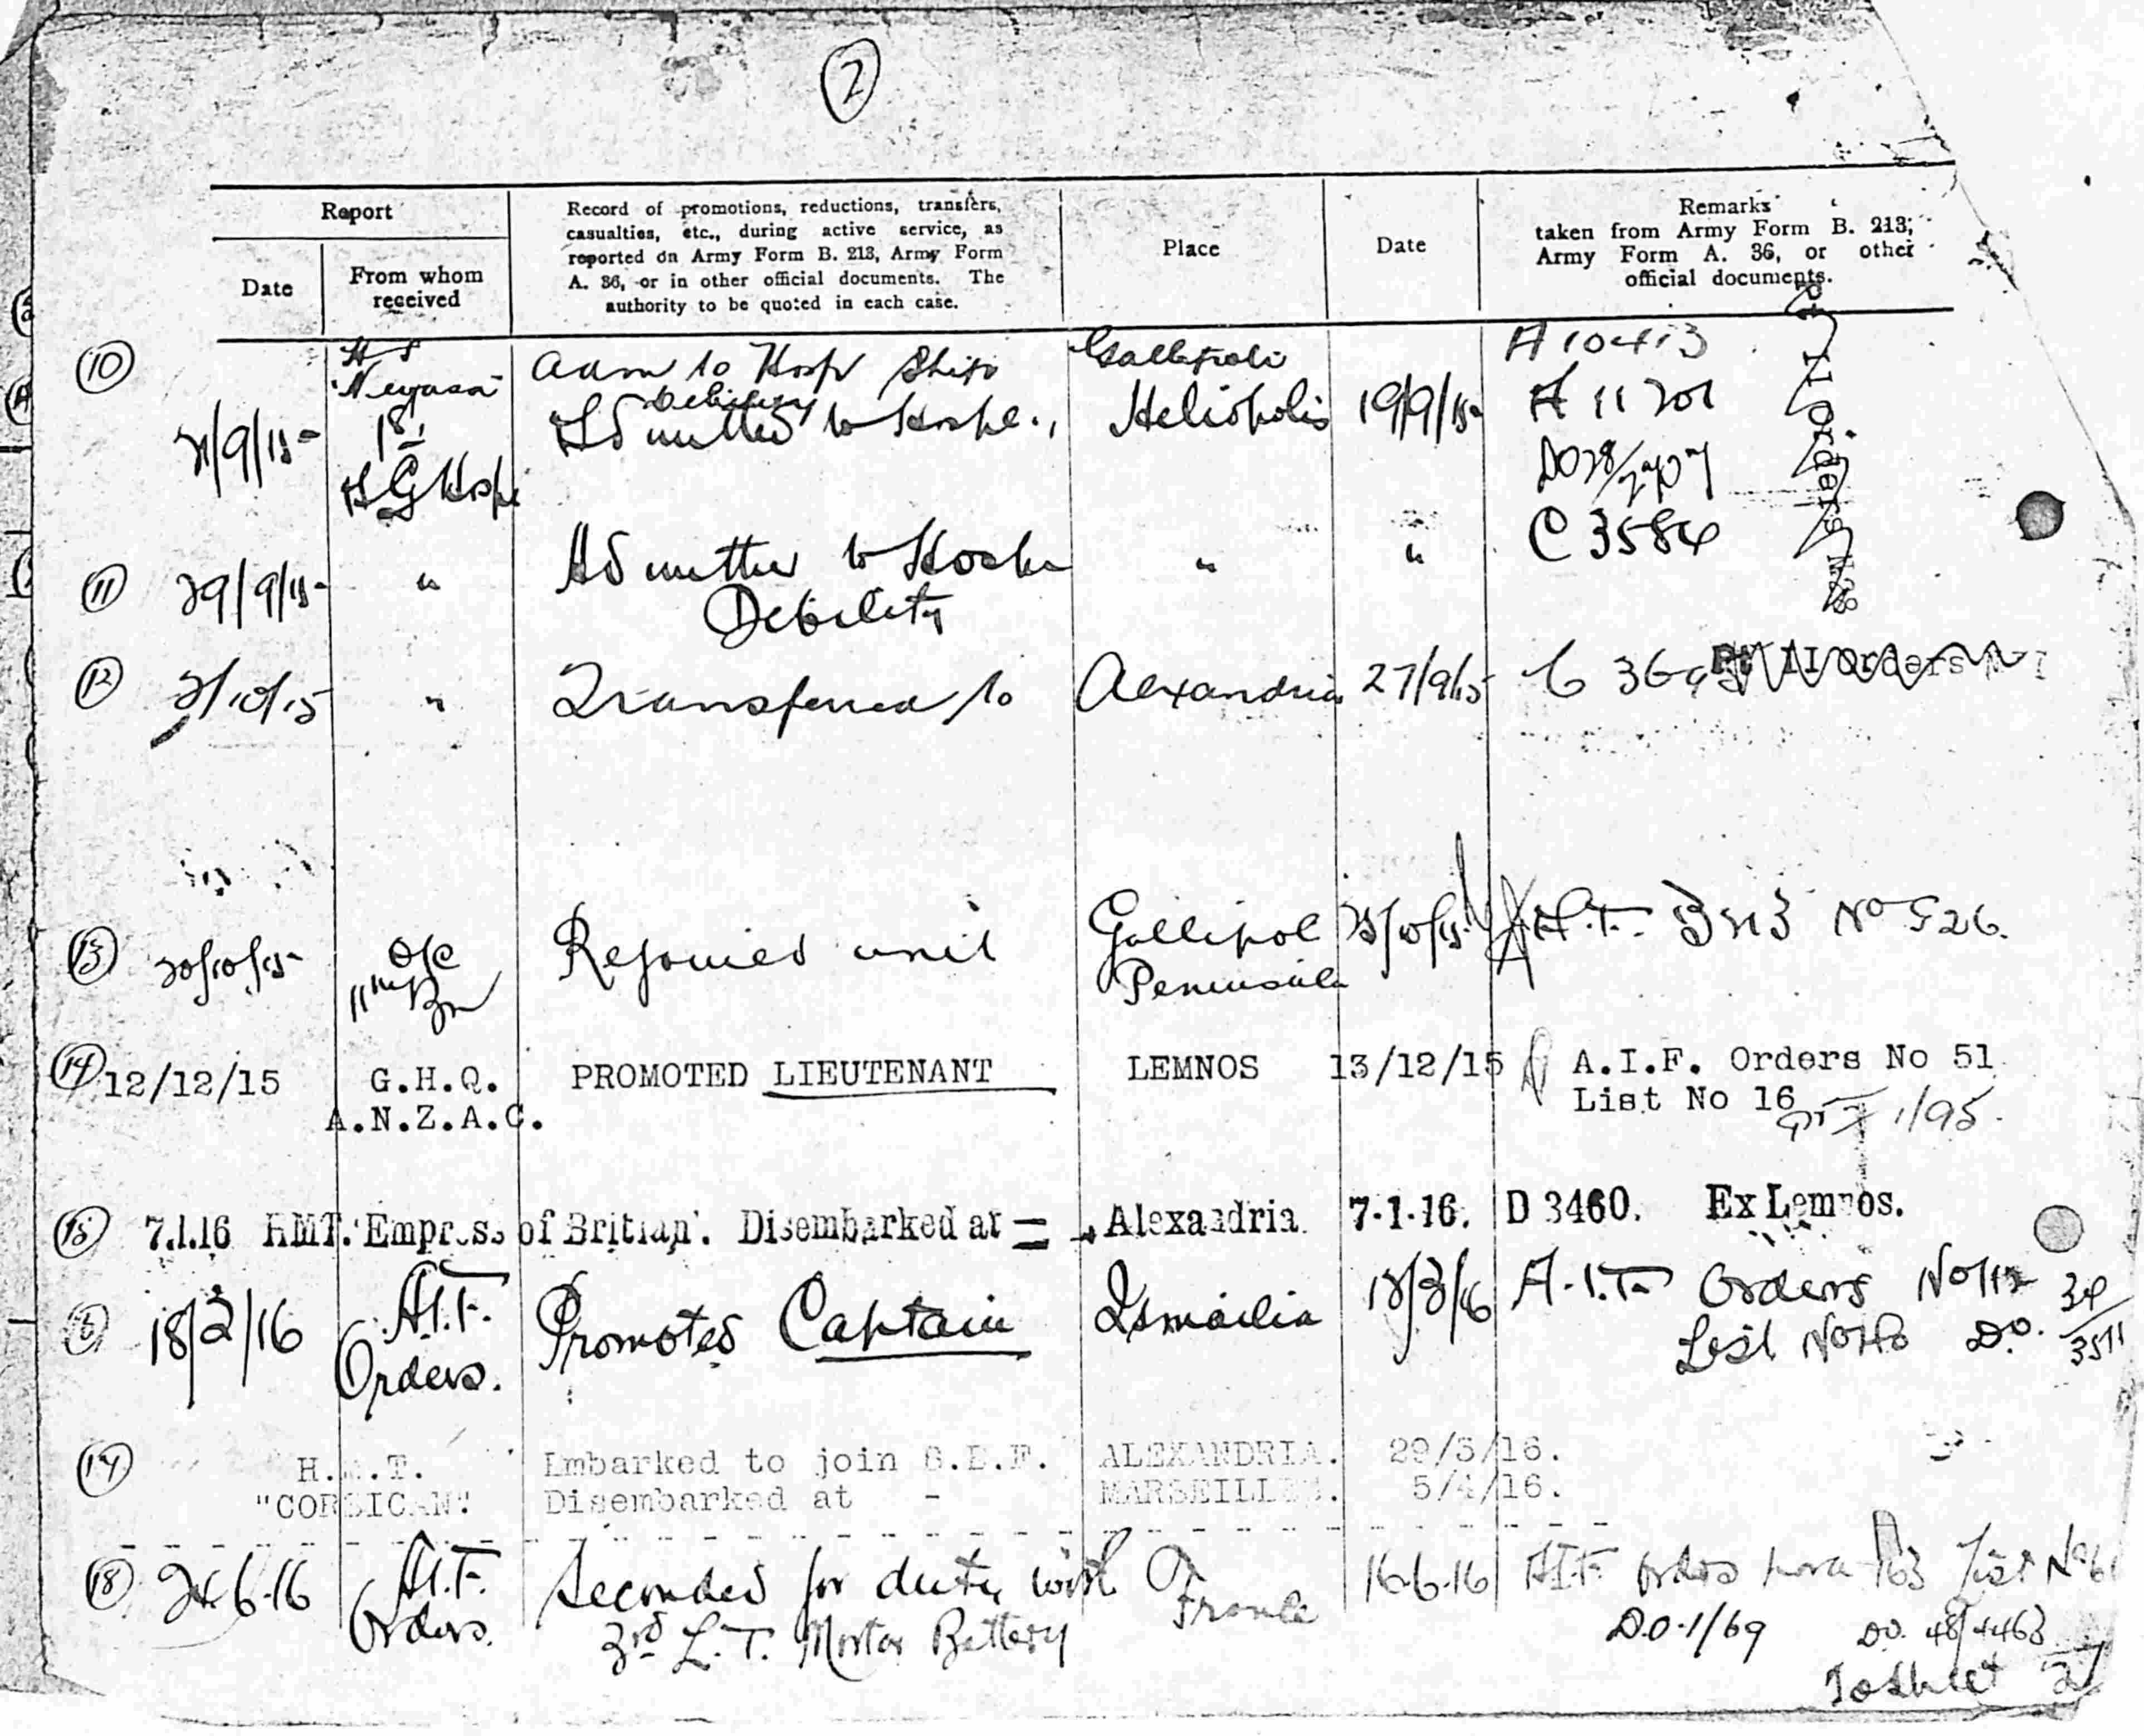 2
Report
Record of promotions, reductions, transfers,
casualties, etc., during active service, as
reported on Army Form B. 213, Army Form
A. 36, or in other official documents. The
authority to be quoted in each case.
Place
Date
Remarks
taken from Army Form B. 213,
Army Form A. 36, or other
official documents.
Date
From whom
received
10
HS
"Neuralia"
Adm to Hosp Ship
Gallipoli
A 10413
Debility
21/9/15
1st
Admitted to Hosple.,
Heliopolis
19/9/15
A 11201
A G Hospl
DO 28/2707
C 3584
II Orders No
11
29/9/15
"
Admitted to Hospl
"
"
Debility
12
2/10/15
"
Transferred to
Alexandria
27/9/15
II Orders
13
20/10/15
O/C
11th Bn
Rejoined unit
Gallipoli
Peninsula
No 526.
14
12/12/15
G.H.Q.
PROMOTED LIEUTENANT
LEMNOS
13/12/15
A.I.F. Orders No 51
A.N.Z.A.C.
List No 16
1/95.
15
7.1.16 HMT. 'Empress of Britian'. Disembarked at =
Alexandria.
7.1.16.
D 3460. Ex Lemnos.
16
18/3/16
A.I.F.
Orders.
Promoted Captain
Ismailia
A.I.F. Orders
List
D.O.
17
H.M.T.
Embarked to join B.E.F.
ALEXANDRIA.
29/3/16.
"CORSICAN"
Disembarked at -
MARSEILLES.
5/4/16.
18
24-6-16
A.I.F.
Orders.
Seconded for duty with
France
16-6-16
A.I.F. Orders para 163 List No 61
3rd L.T. Mortar Battery
D.O. 1/69
DO. 48/4463
To Sheet 3